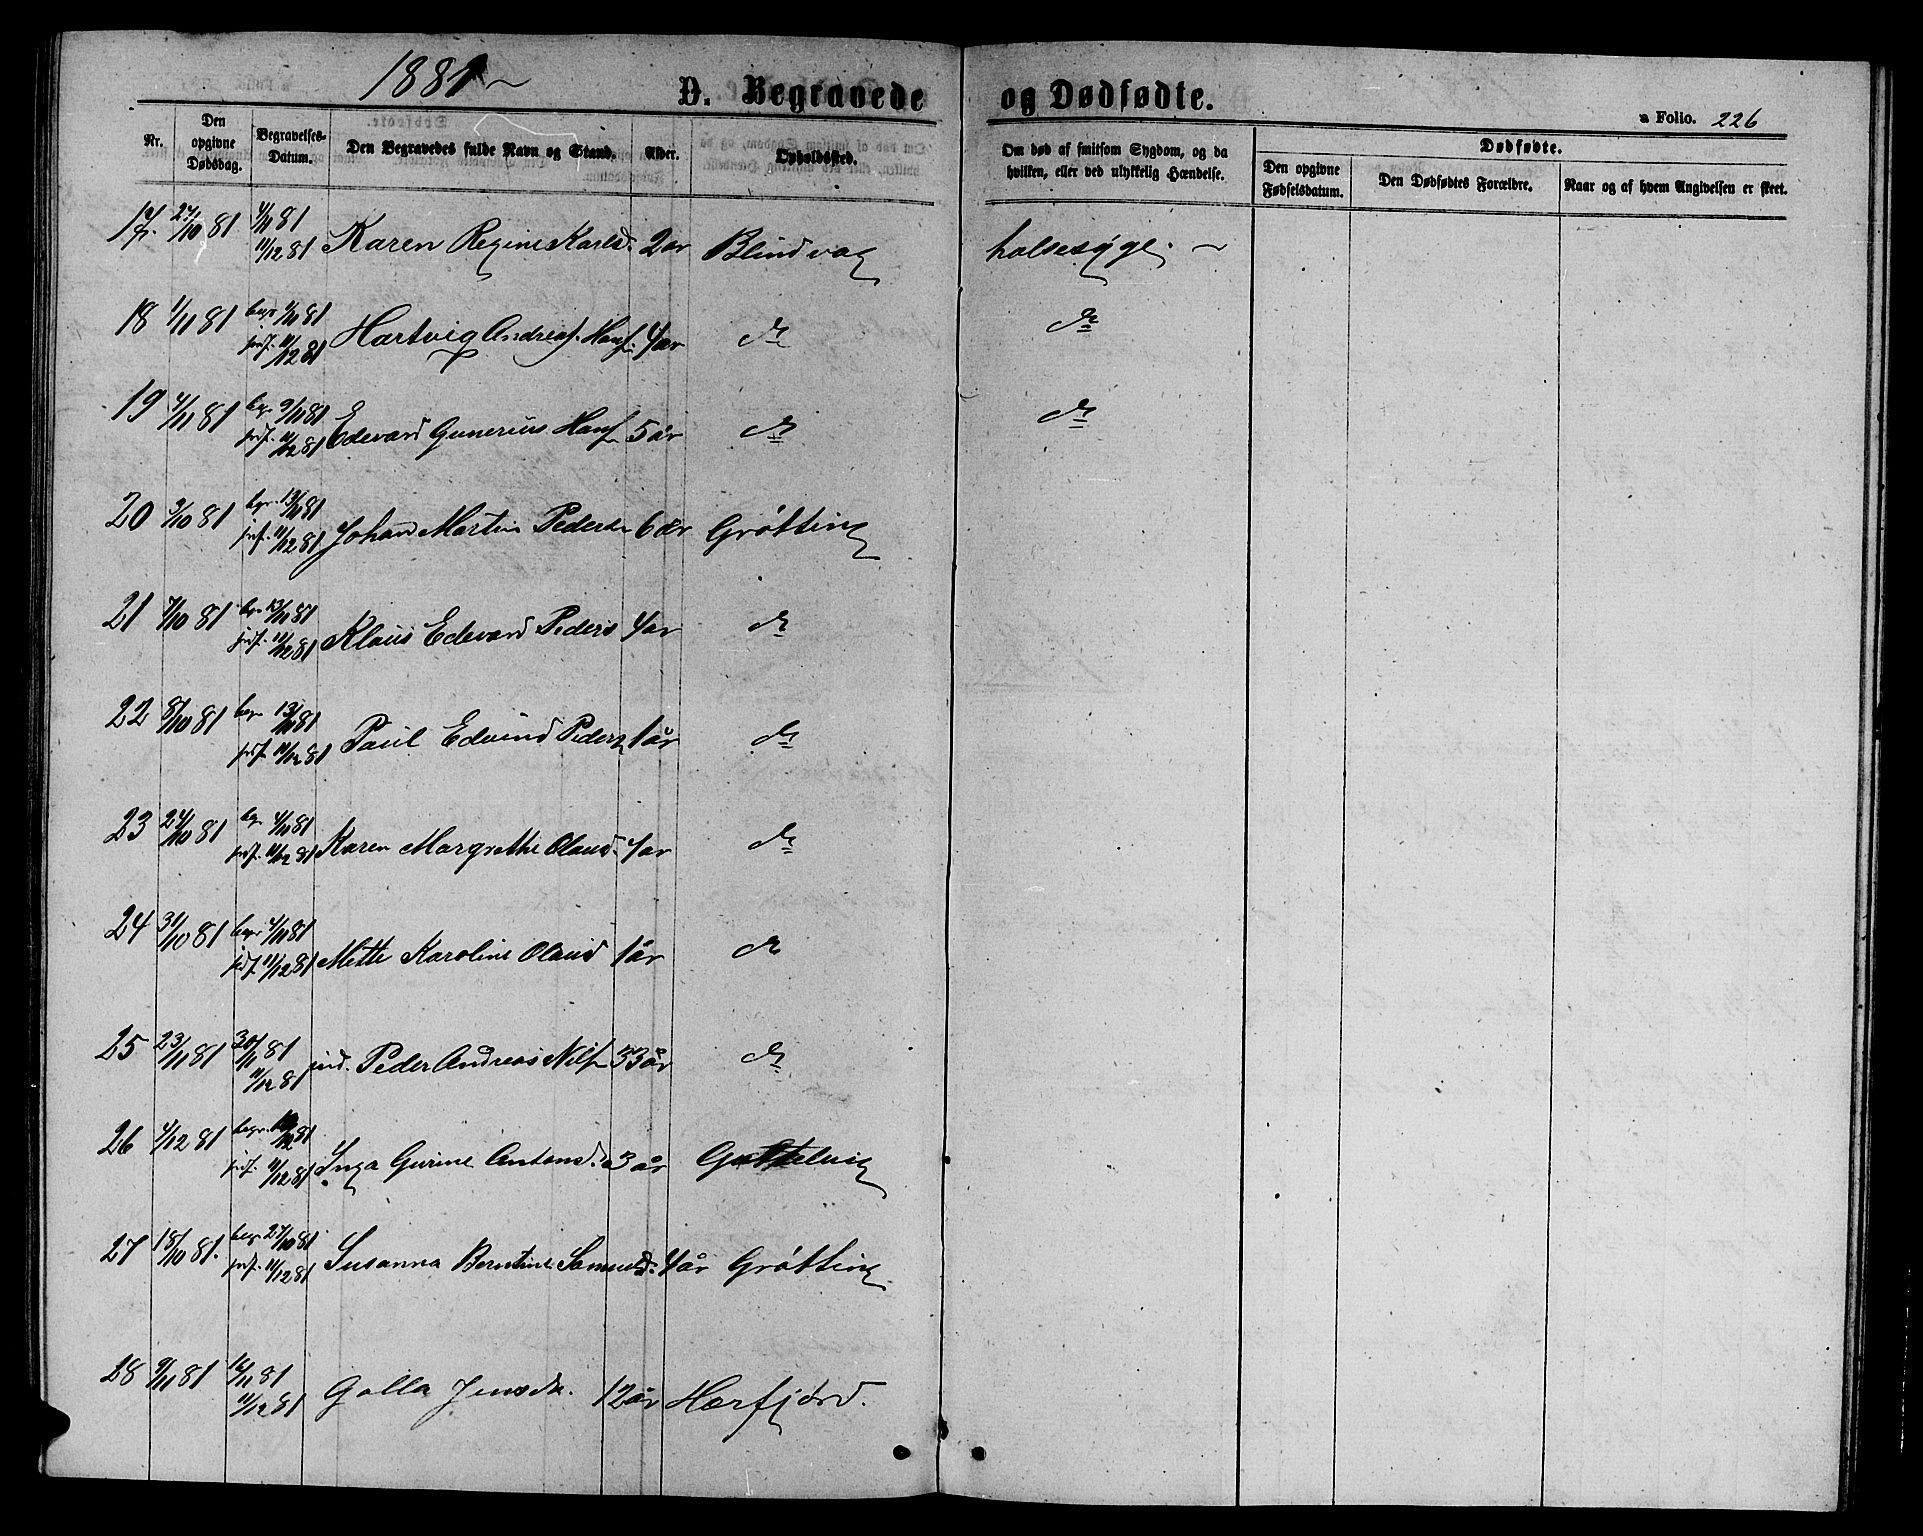 1881
D. Begravede og Dødfødte.
a Folio. 226
Nr.
Den opgivne Dødsdag.
Begravelses-Datum.
Den Begravedes fulde Navn og Stand.
Alder.
Opholdssted.
Om død af smitsom Sygdom, og da hvilken, eller ved ulykkelig Hændelse.
Dødfødte.
Den opgivne Fødselsdatum.
Den Dødfødtes Forældre.
Naar og af hvem Angivelsen er skeet.
17. 27/10 81 4/11 81 Karen Regine Karlsd. 2 ar Blindvag halsesyge.
11/12 81
18 1/11 81 begr 9/11 81 Hartvig Andreas Hans. 4 ar do do
jordf. 11/12 81
19 4/11 81 begr 9/11 81 Edevard Gunerius Hans 5 år do do
jordf. 11/12 81
20 3/10 81 begr. 13/10 81 Johan Martin Peders 6 år Grøtting
jordf. 11/12 81
21 7/10 81 begr 13/10 81 Klaus Edevard Peders 4 ar do
jordf. 11/12 81
22 8/10 81 begr 13/10 81 Paul Edvind Peders 1 år do
jordf. 11/12 81
23 24/10 81 begr 4/11 81 Karen Margrethe Olausd. 4 ar do
jordf. 11/12 81
24 31/10 81 begr 4/11 81 Mette Karoline Olausd 1 år do
jordf. 11/12 81
25 23/11 81 30/11 81 ind. Peder Andreas Nils 33 år do
11/12 81
26 4/12 81 begr. 12 81 Inga Gurine Antonsd. 3 år
jordf. 11/12 81
27 18/10 81. begr 27/10 81 Susanna Berntine Samuelsd. 4 år Grøtting
jordf. 11/12 81
28 9/11 81 16/11 81 Golla Jensdr. 12 år Hærfjord.
11/12 81